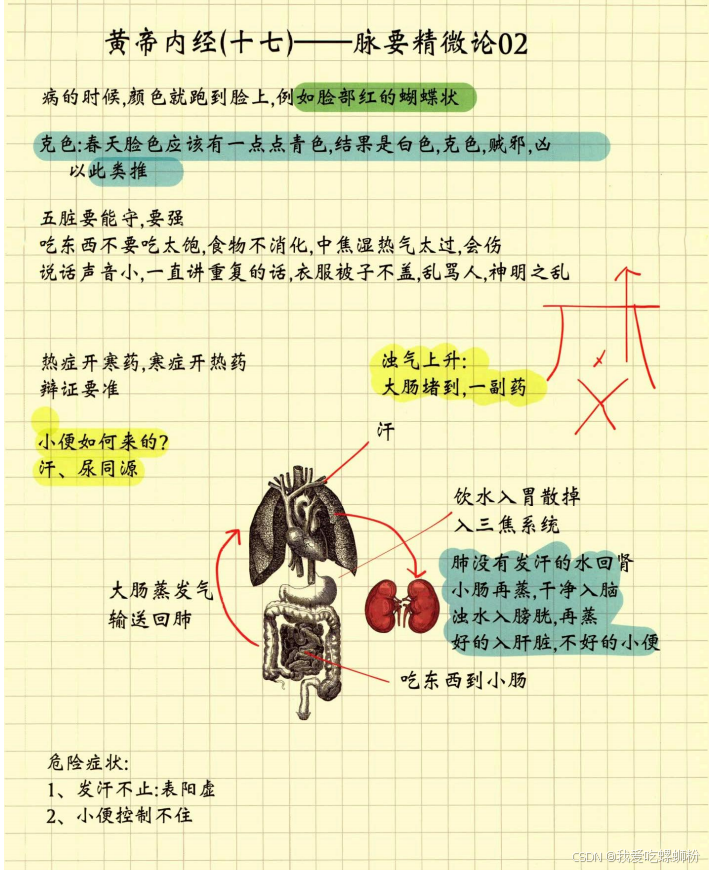 黄帝内经(十七)——脉要精微论02
病的时候,颜色就跑到脸上,例如脸部红的蝴蝶状
克色:春天脸色应该有一点点青色,结果是白色,克色,贼邪,凶
以此类推
五脏要能守,要强
吃东西不要吃太饱,食物不消化,中焦湿热气太过,会伤
说话声音小,一直讲重复的话,衣服被子不盖,乱骂人,神明之乱
热症开寒药,寒症开热药
辩证要准
浊气上升:
大肠堵到,一副药
小便如何来的?
汗、尿同源
汗
饮水入胃散掉
入三焦系统
肺没有发汗的水回肾
小肠再蒸,干净入脑
浊水入膀胱,再蒸
好的入肝脏,不好的小便
大肠蒸发气
输送回肺
吃东西到小肠
危险症状:
1、发汗不止:表阳虚
2、小便控制不住
CSDN @我爱吃螺蛳粉